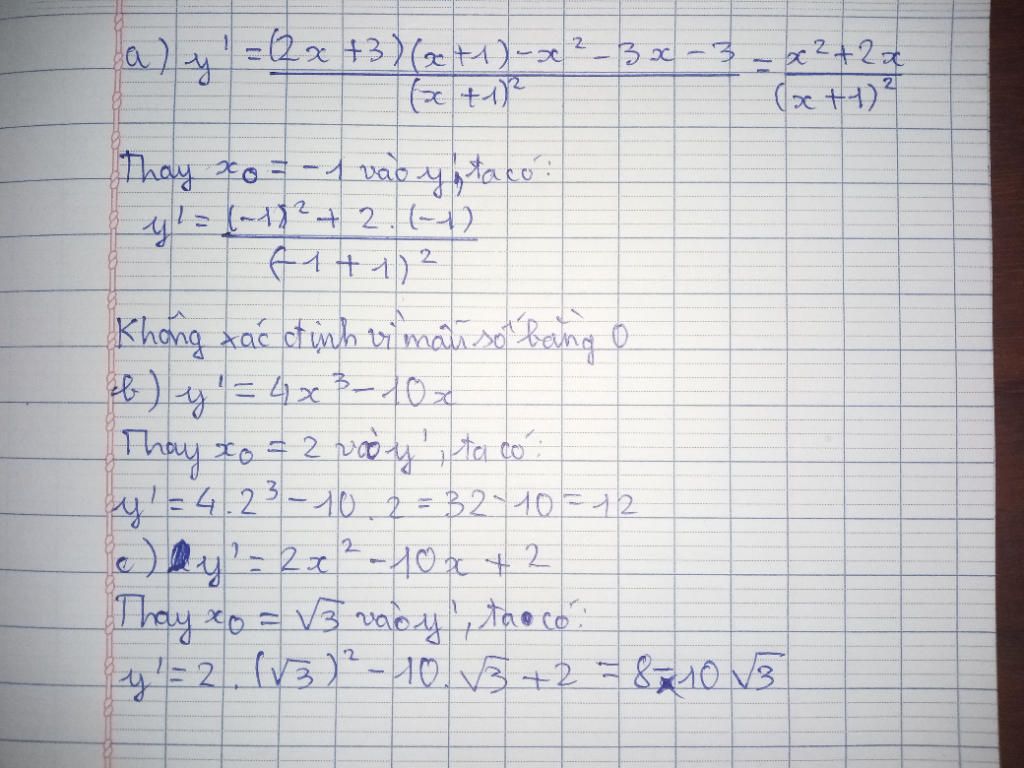 a) y' = (2x + 3)(x + 1) - x² - 3x - 3 / (x + 1)² = x² + 2x / (x + 1)²
Thay x₀ = -1 vào y', ta có:
y' = (-1)² + 2 . (-1) / (-1 + 1)²
Không xác định vì mẫu số bằng 0
b) y' = 4x³ - 10x
Thay x₀ = 2 vào y', ta có:
y' = 4 . 2³ - 10 . 2 = 32 - 10 = 12
c) y' = 2x² - 10x + 2
Thay x₀ = √3 vào y', ta có:
y' = 2 . (√3)² - 10 . √3 + 2 = 8 - 10√3